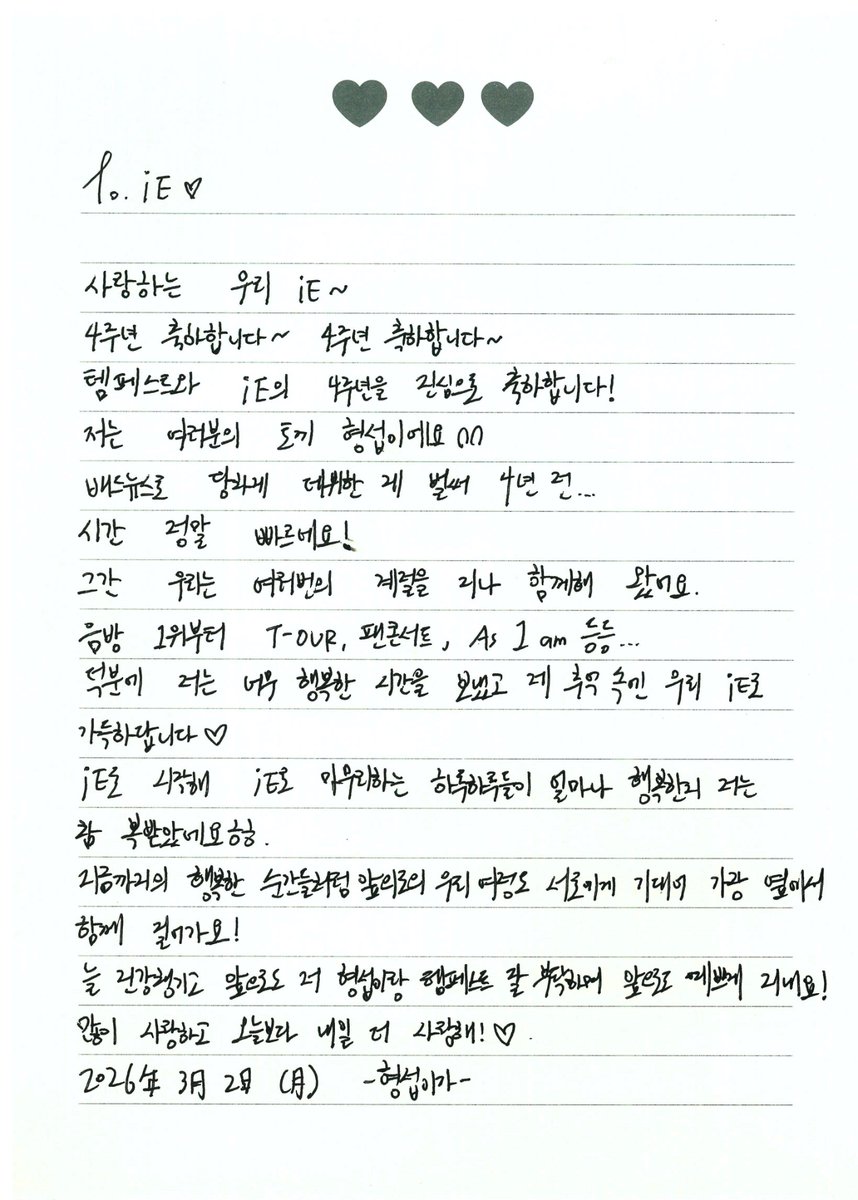 To. iE ♡
사랑하는 우리 iE~
4주년 축하합니다~ 4주년 축하합니다~
템페스트와 iE의 4주년을 진심으로 축하합니다!
저는 여러분의 토끼 형섭이에요 ∩∩
배드뉴스로 당차게 데뷔한 게 벌써 4년 전...
시간 정말 빠르네요!
그간 우리는 여러번의 계절을 지나 함께해 왔어요.
음방 1위부터 T-OUR, 팬콘서트, As I am 등등...
덕분에 저는 너무 행복한 시간을 보냈고 제 추억 속엔 우리 iE로
가득하답니다♡
iE로 시작해 iE로 마무리하는 하루하루들이 얼마나 행복한지 저는
참 복받았네요ㅎㅎ.
지금까지의 행복한 순간들처럼 앞으로의 우리 여정도 서로에게 기대어 가장 옆에서
함께 걸어가요!
늘 건강챙기고 앞으로도 저 형섭이랑 템페스트 잘 부탁하며 앞으로도 예쁘게 지내요!
많이 사랑하고 오늘보다 내일 더 사랑해!♡.
2026年 3月 2日 (月) -형섭이가-